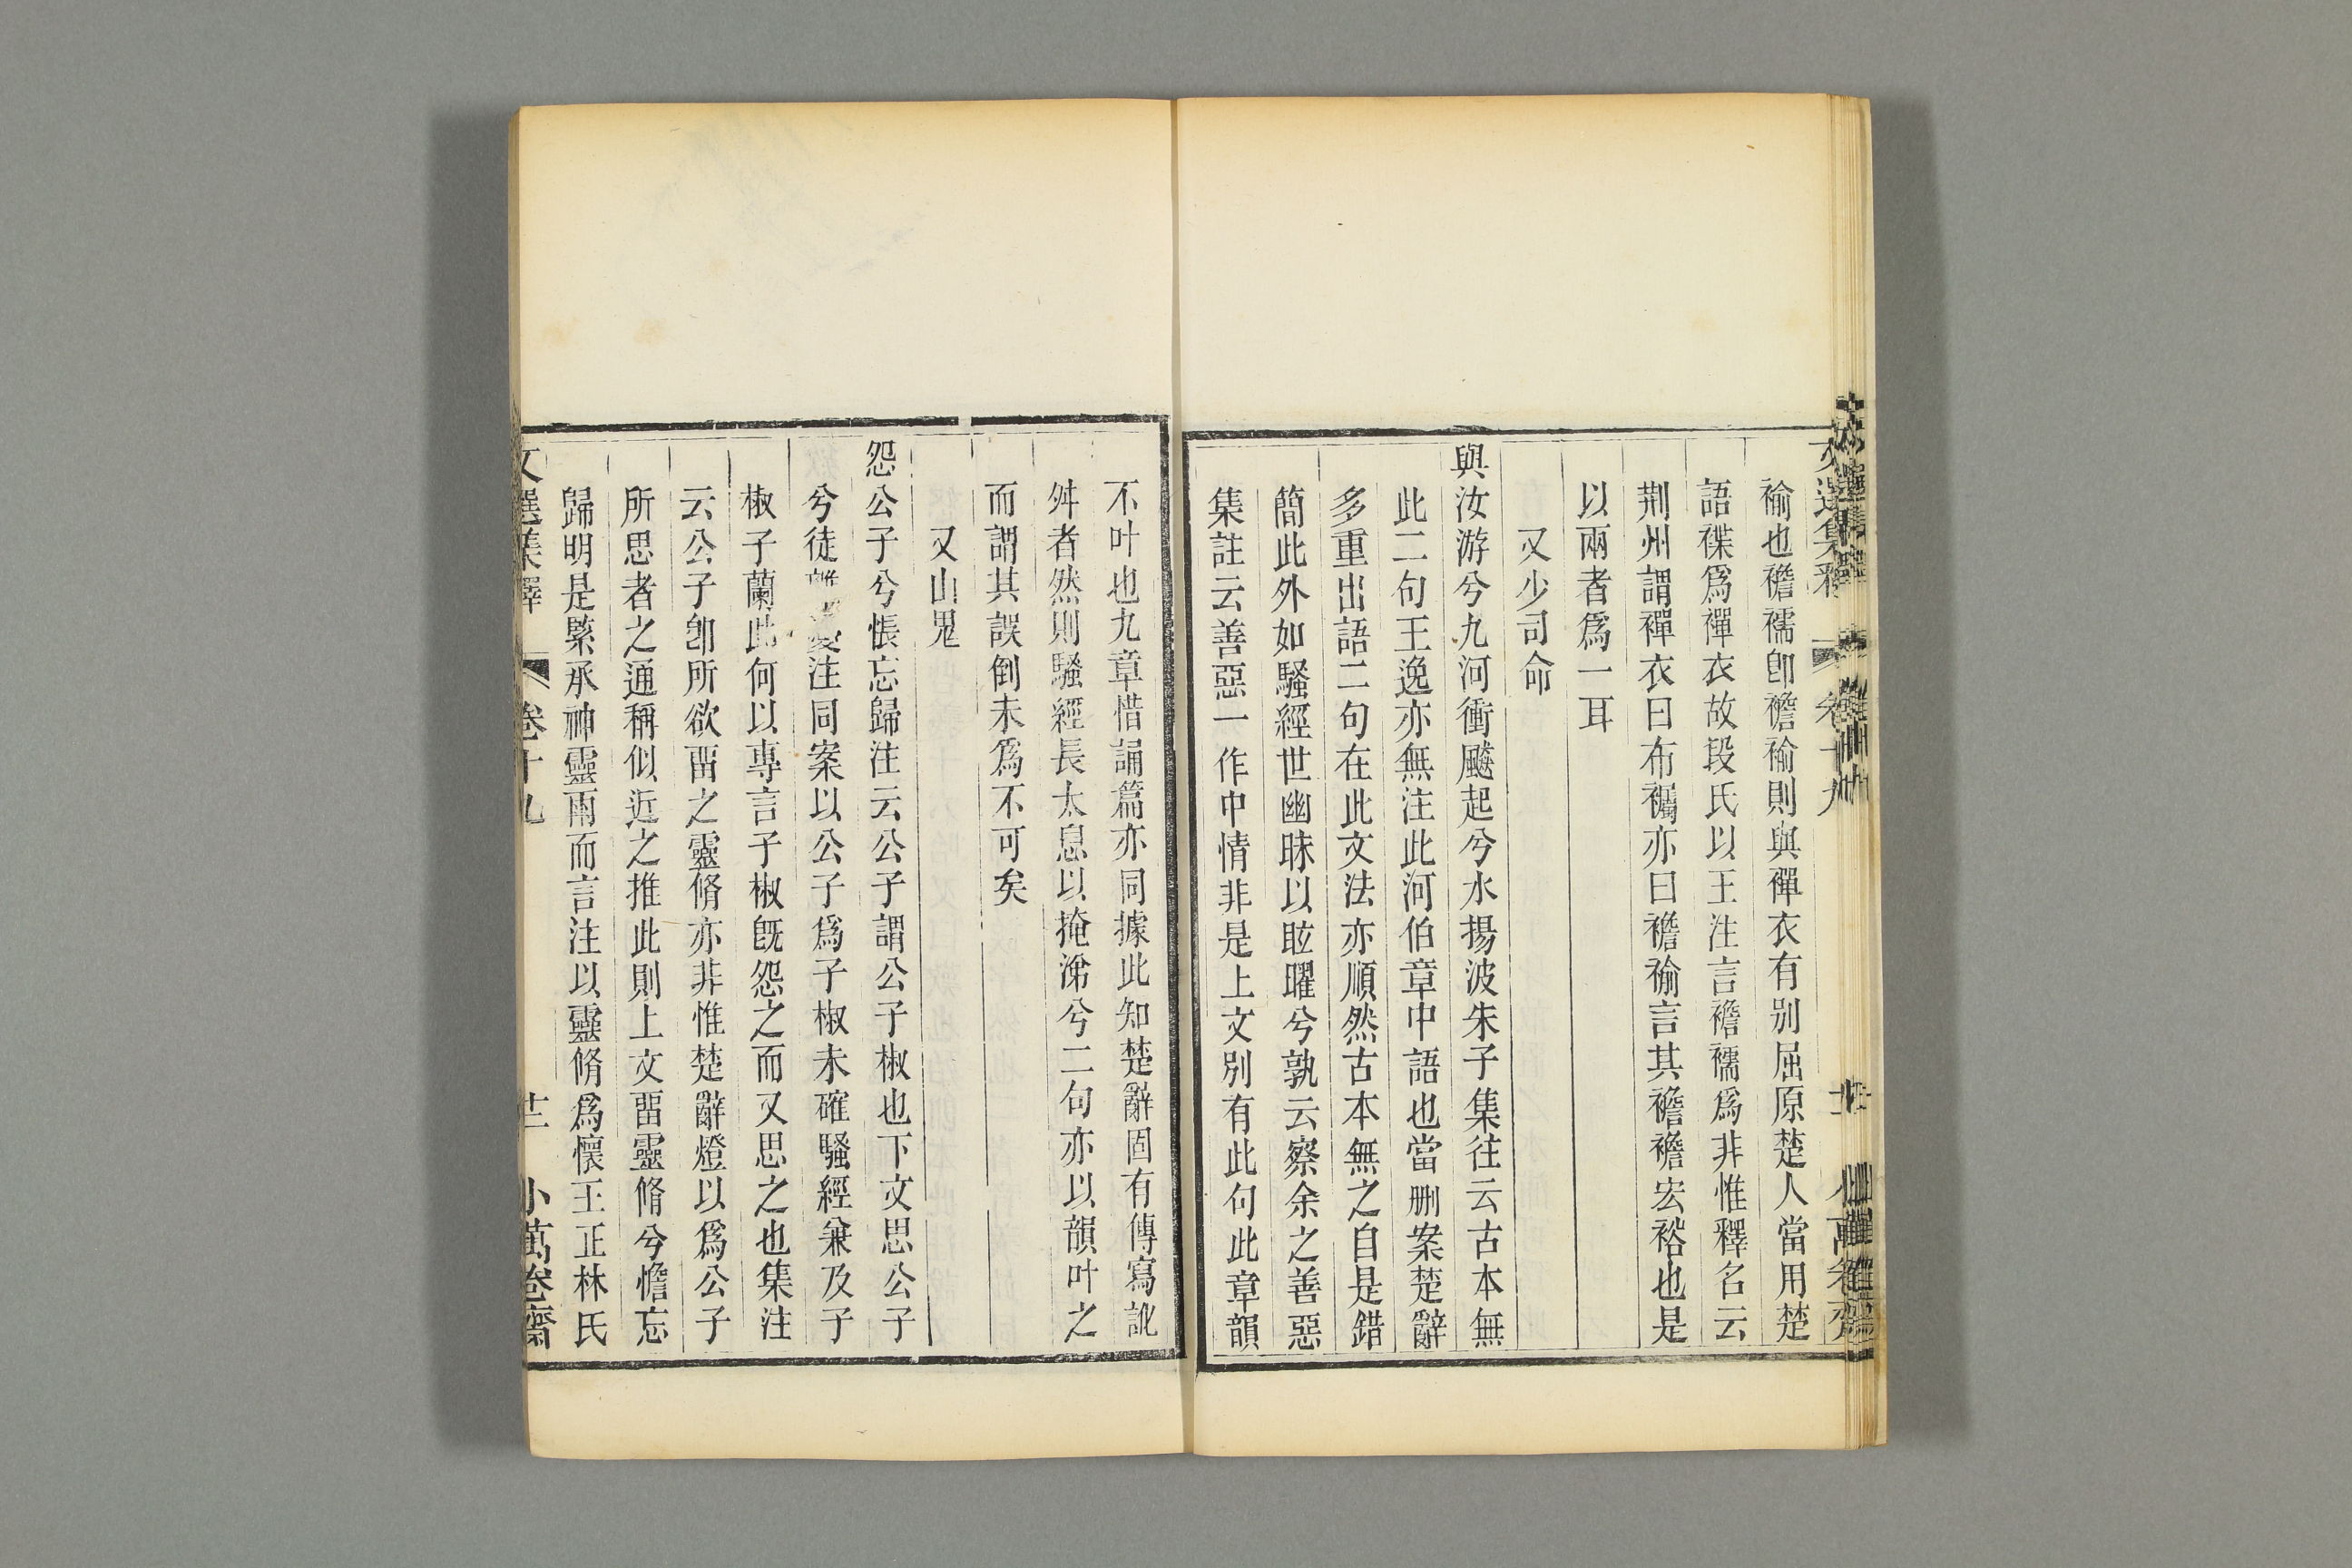 褕也襜襦卽襜褕則與襌衣有別屈原楚人當用楚
語褋爲襌衣故段氏以王注言襜襦爲非惟釋名云
荆州謂襌衣曰布𧞫亦曰襜褕言其襜襜宏裕也是
以兩者爲一耳
又少司命
與汝游兮九河衝飈起兮水揚波朱子集往云古本無
此二句王逸亦無注此河伯章中語也當刪案楚辭
多重出語二句在此文法亦順然古本無之自是錯
簡此外如騷經世幽昧以眩曜兮孰云察余之善惡
集註云善惡一作中情非是上文別有此句此章韻
不叶也九章惜誦篇亦同據此知楚辭固有傳寫訛
舛者然則騷經長太息以掩涕兮二句亦以韻叶之
而謂其誤倒未爲不可矣
又山鬼
怨公子兮悵忘歸注云公子謂公子椒也下文思公子
兮徒離憂注同案以公子爲子椒未確騷經兼及子
椒子蘭此何以專言子椒旣怨之而又思之也集注
云公子卽所欲畱之靈脩亦非惟楚辭燈以爲公子
所思者之通稱似近之推此則上文畱靈脩兮憺忘
歸明是緊承神靈雨而言注以靈脩爲懷王正林氏
文選集釋 卷十九 廿 小萬卷齋